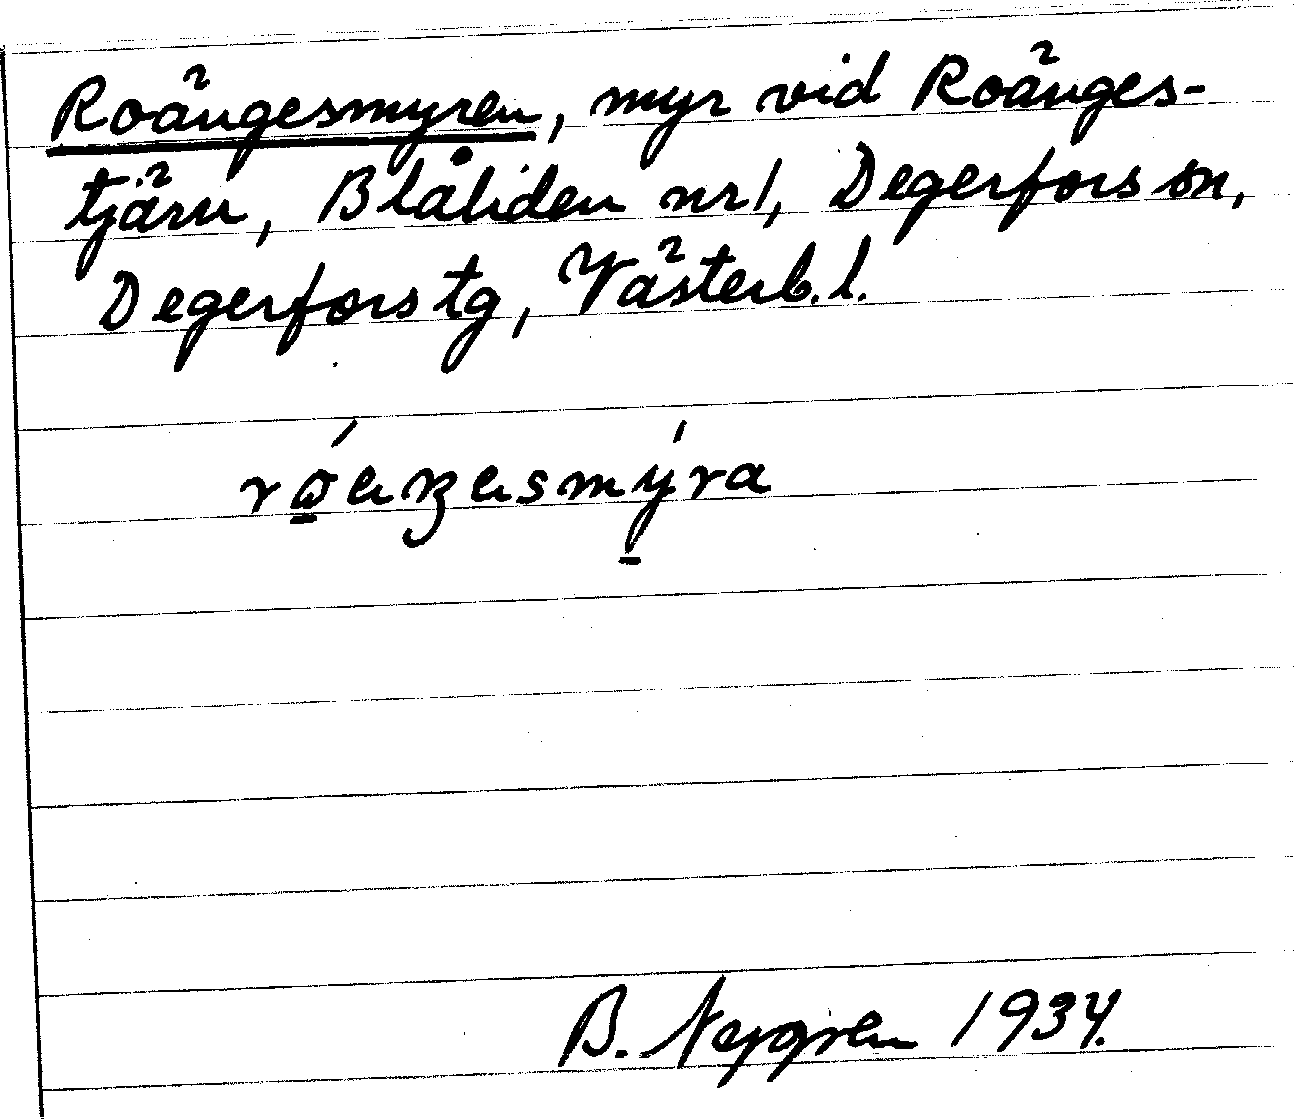 Roängesmyren, myr vid Roänges-
tjärn, Blåliden nr 1, Degerfors sn,
Degerfors tg, Västerb. l.
B. Nygren 1934.